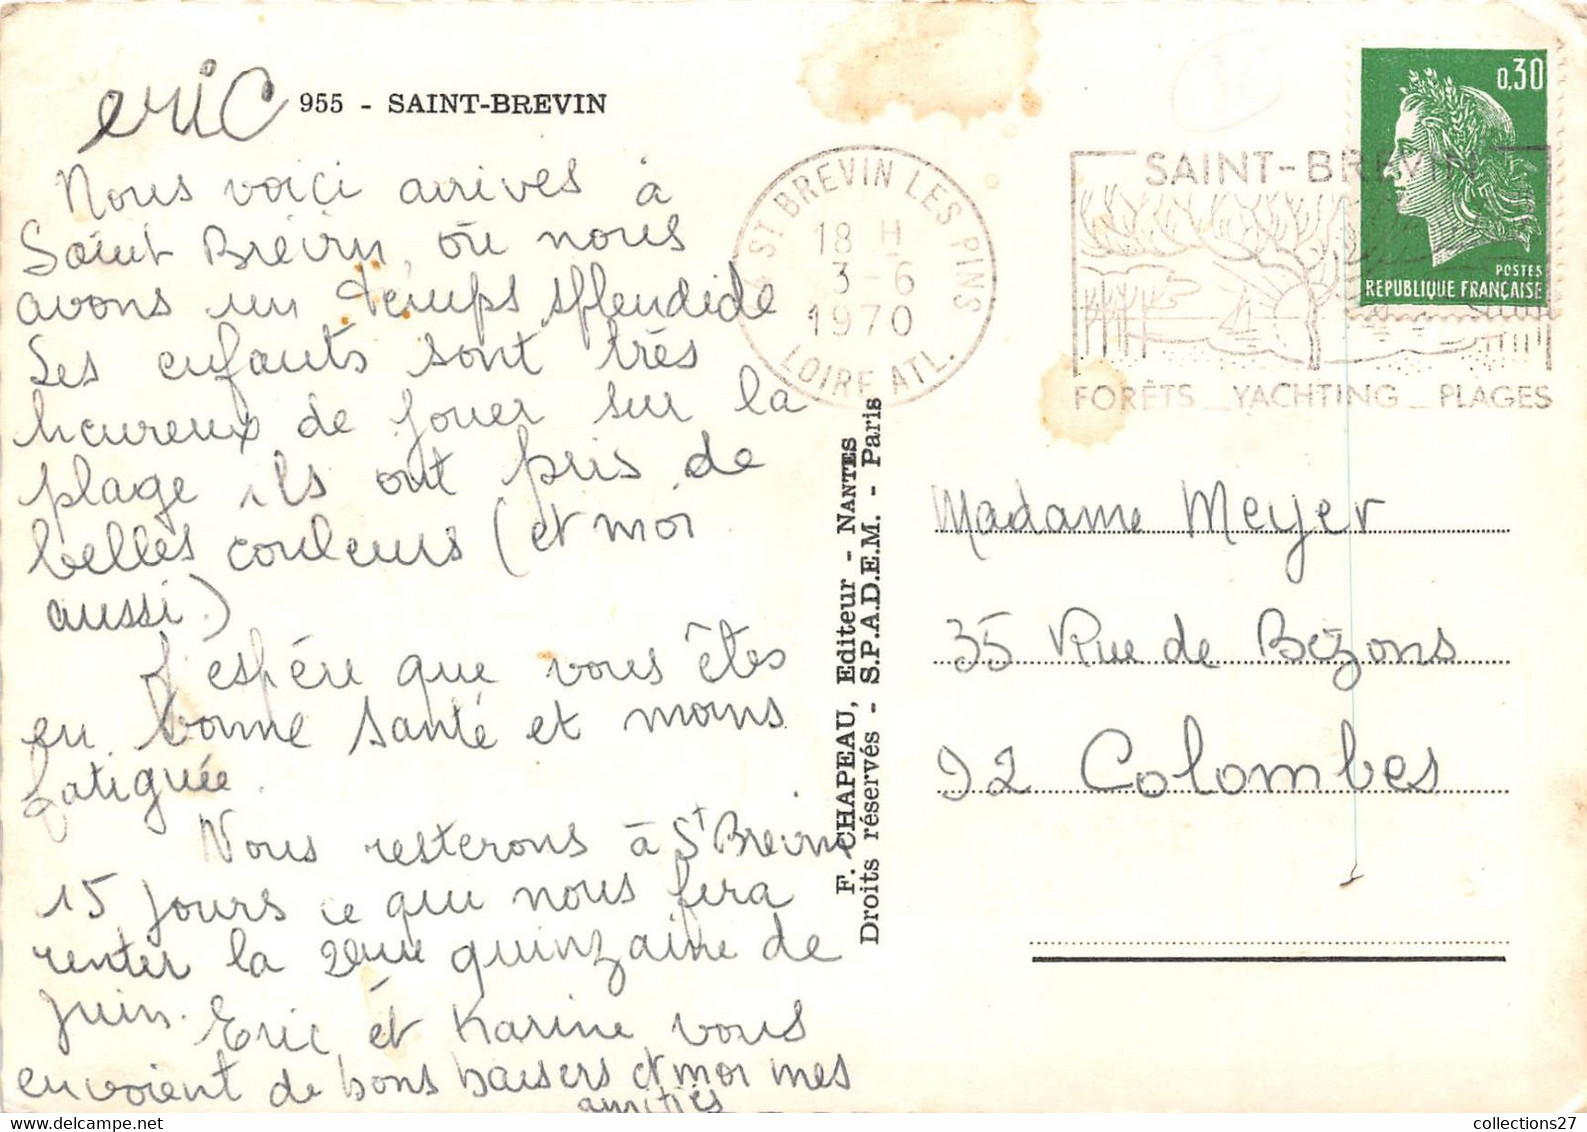 eric
955 - SAINT-BREVIN
Nous voici arrives à
Saint Brévin, où nous
avons un temps splendide
Les enfants sont très
heureux de jouer sur la
plage ils ont pris de
belles couleurs (et moi
aussi.)
J'espère que vous êtes
en bonne santé et moins
fatiguée.
Nous resterons à St Brevin
15 jours ce qui nous fera
renter la 2ème quinzaine de
juin. Eric et Karine vous
envoient de bons baisers et moi mes
amitiés
F. CHAPEAU, Editeur - NANTES
Droits réservés - S.P.A.D.E.M. - Paris
ST BREVIN LES PINS
18 H
3-6
1970
LOIRE ATL.
SAINT-BREVIN
FORÊTS _ YACHTING _ PLAGES
0,30
POSTES
REPUBLIQUE FRANÇAISE
Madame Meyer
35 Rue de Bezons
92 Colombes
collections27